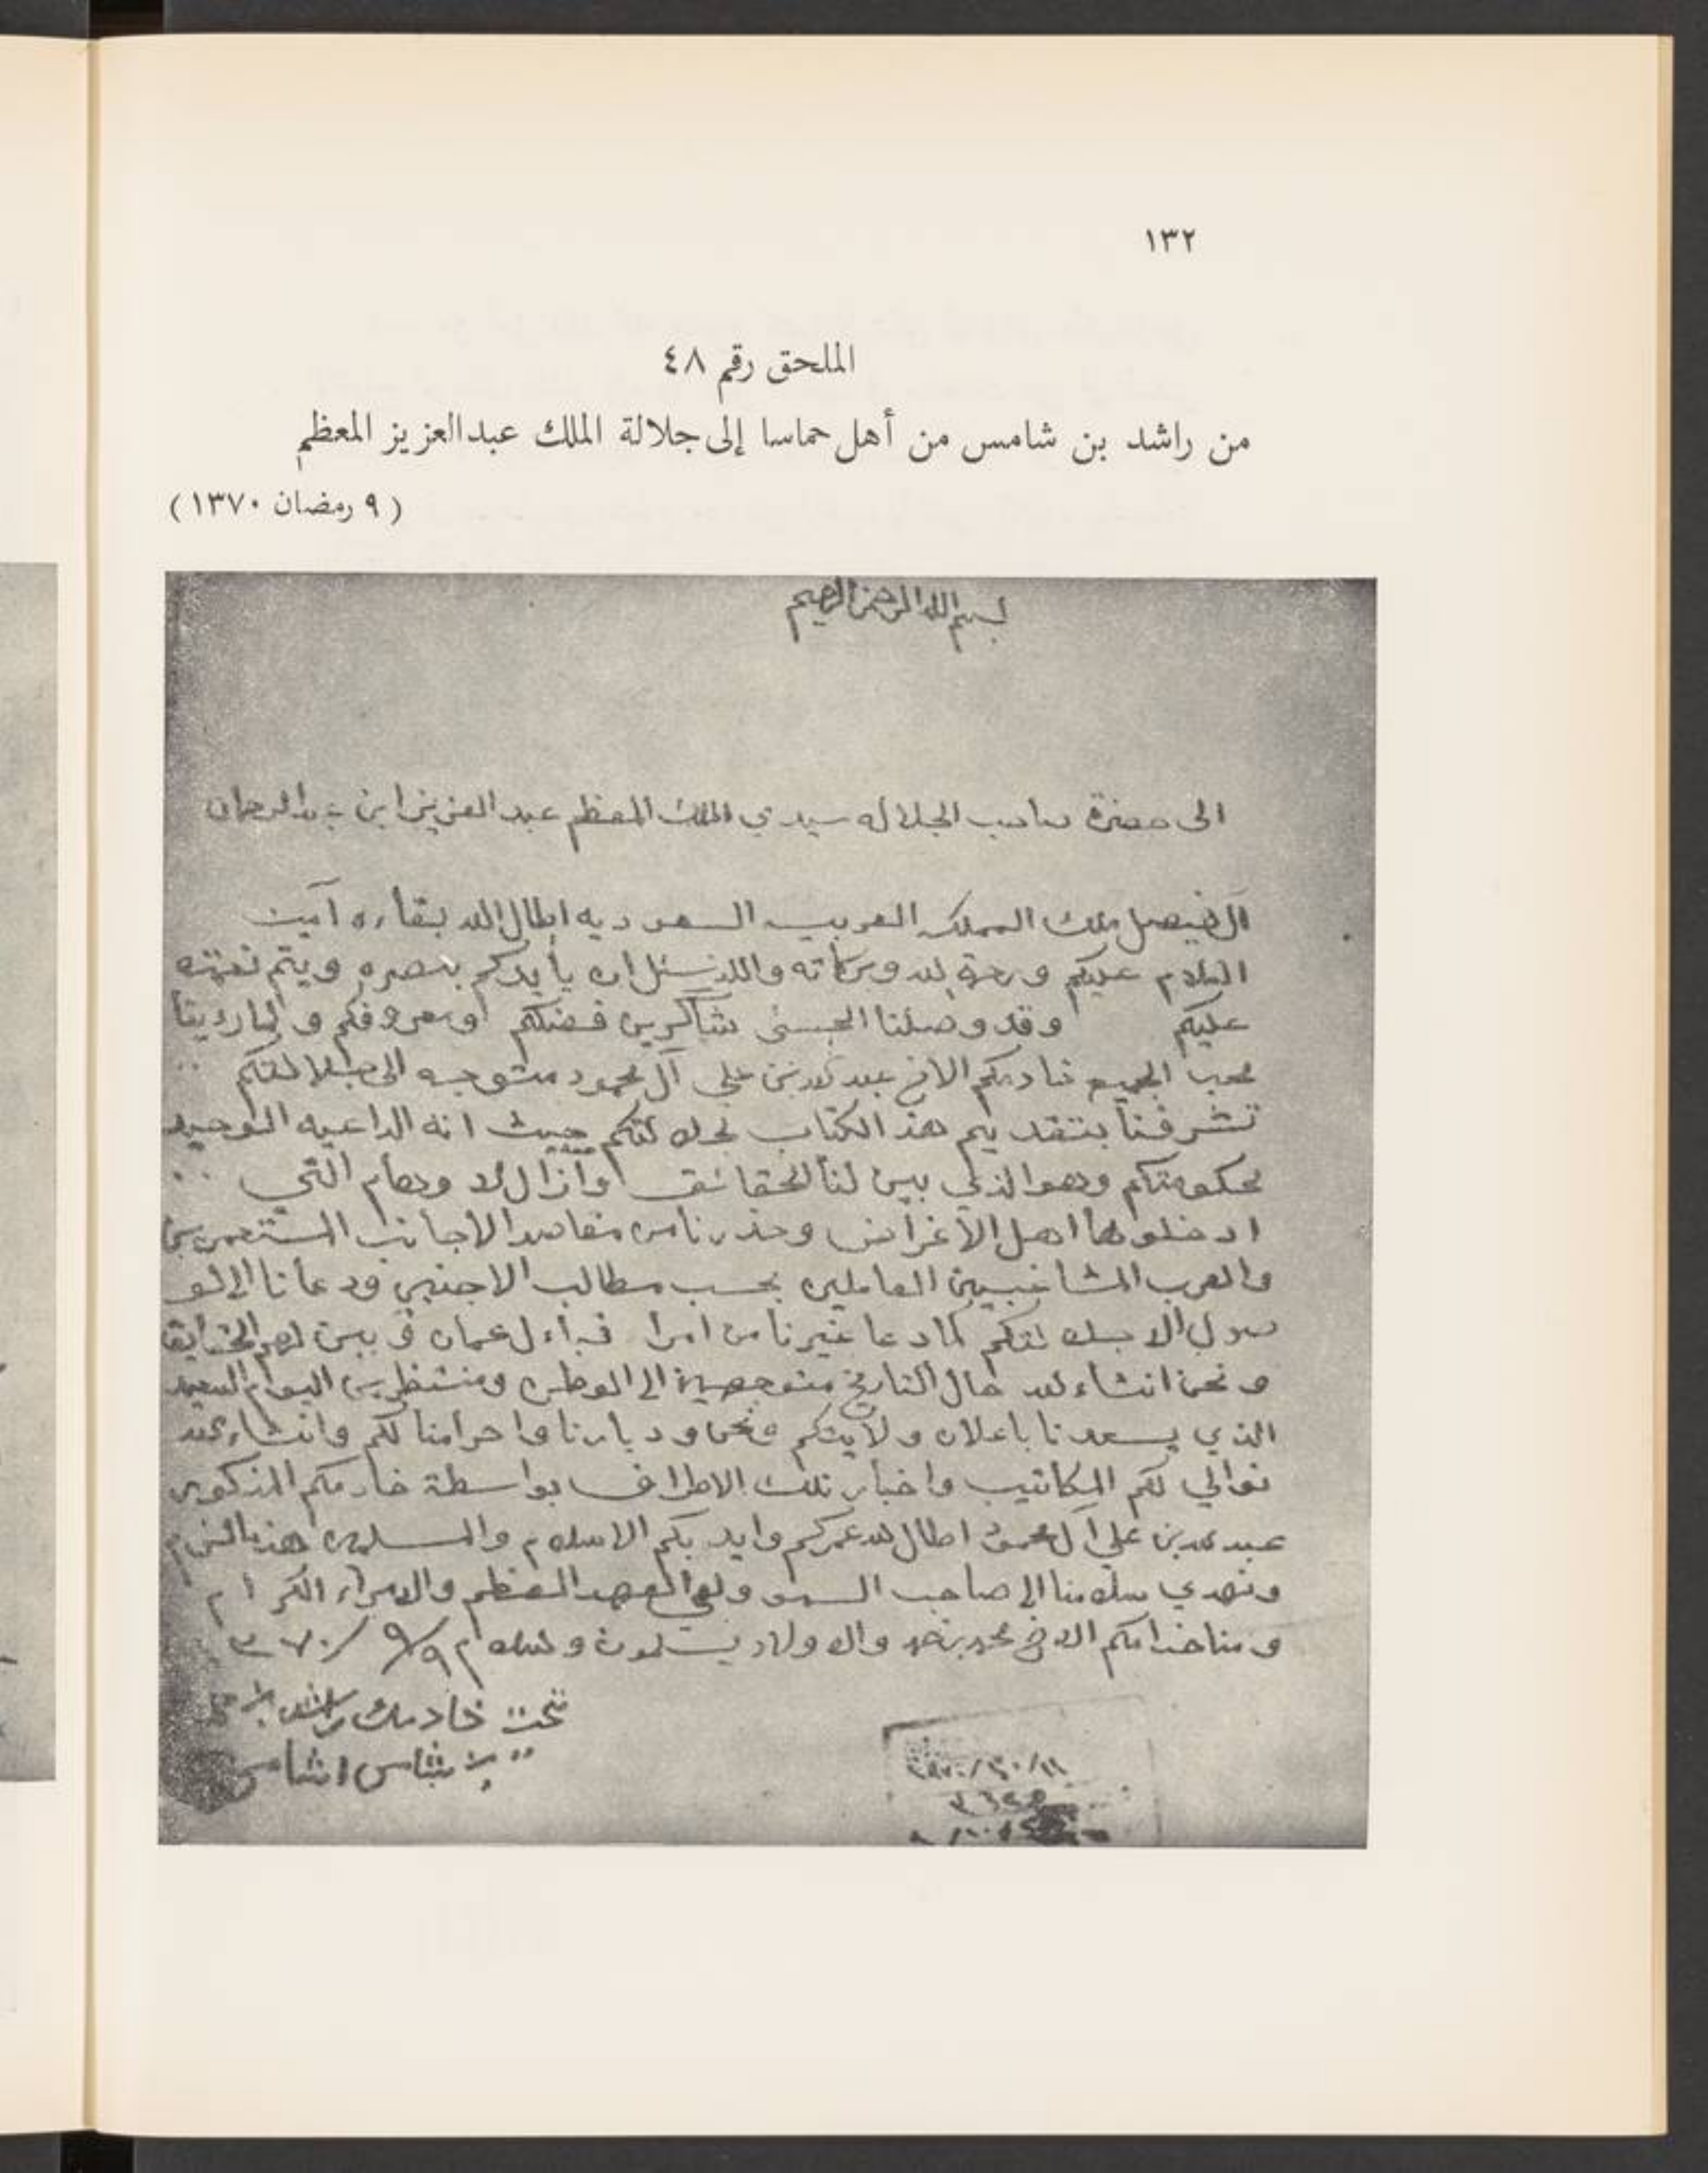 ١٣٢
الملحق رقم ٤٨
من راشد بن شامس من أهل حماسا إلى جلالة الملك عبدالعزيز المعظم
( ٩ رمضان ١٣٧٠ )
بسم الله الرحمن الرحيم
الى حضرة صاحب الجلاله سيدي الملك المعظم عبد العزيز ابن عبدالرحمان
آل فيصل ملك المملكه العربيه السعوديه اطال الله بقاءه آمين
السلام عليكم ورحمة الله وبركاته والله نسئل ان يأيدكم بنصره ويتم نعمته
عليكم وقد وصلنا الحسى شاكرين فضلكم ومعروفكم و لما رئينا
محب الجميع خادمكم الاخ عبد الله بن علي آل محمود متوجه الى جلالتكم
تشرفنا بتقديم هذ الكتاب لجلالتكم حيث انه الداعيه الوحيد
لحكومتكم وهو الذي بين لنا الحقائق وازال الاوهام التي
ادخلوها اهل الأغراض وحذرنا من مقاصد الاجانب المستعمرين
والعرب المشاغبين العاملين بحسب مطالب الاجنبي ودعانا الى الو
صول الا جلالتكم كما دعا غيرنا من امرا قبائل عمان و بين لهم الحقايق
و نحن انشاء الله حال التاريخ متوجهين الى الوطن ومنتظرين اليوم السعيد
الذي يسعدنا باعلان ولايتكم ونحن وديارنا واحرامنا لكم وانشاء الله
نوالي لكم المكاتيب واخبار تلك الاطراف بواسطة خادمكم المذكور
عبد الله بن علي آل محمود اطال الله عمركم وايد بكم الاسلام والمسلمين هذ مالزم
ونهدي سلامنا الى صاحب السمو ولي العهد المعظم والامراء الكرام
و منا خدامكم الاخ محمد بن حمد والاولاد يسلمون والسلام ٩/٩/ ٣٧٠
خادمك راشد بن
بن شامس